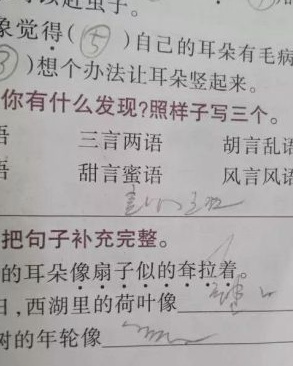 可以赶虫子。
象觉得(⑤)自己的耳朵有毛病
③)想个办法让耳朵竖起来。
你有什么发现?照样子写三个。
语 三言两语 胡言乱语
语 甜言蜜语 风言风语
把句子补充完整。
的耳朵像扇子似的耷拉着。
日,西湖里的荷叶像
树的年轮像